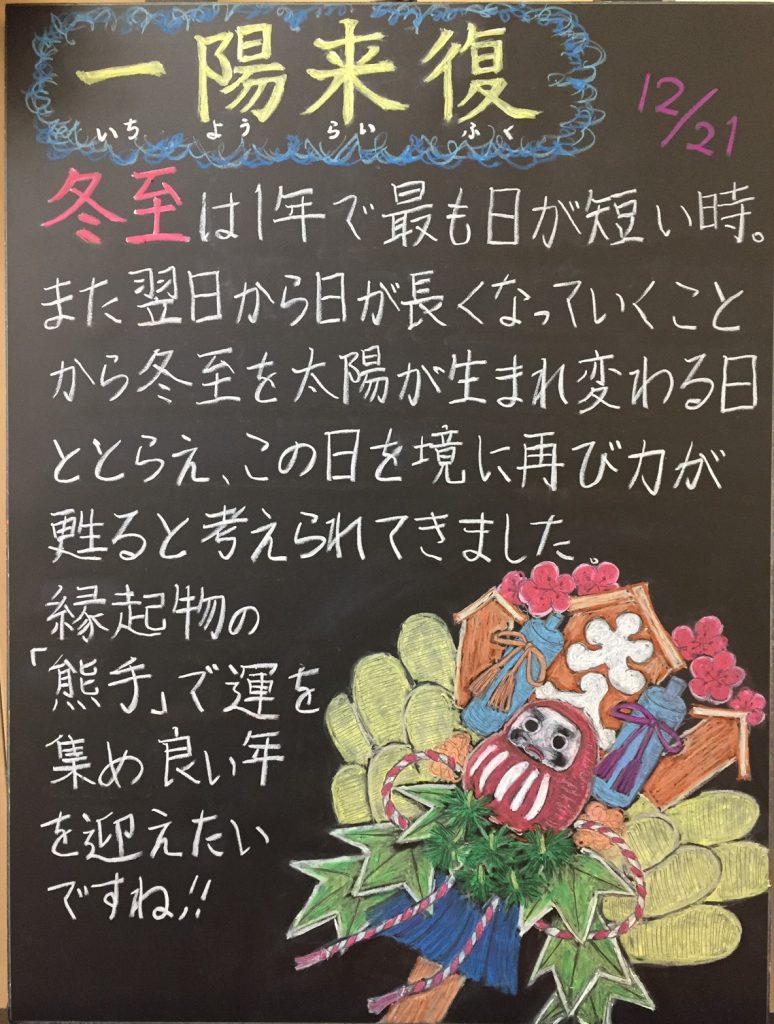 一陽来復
いち よう らい ふく
12/21
冬至は1年で最も日が短い時。
また翌日から日が長くなっていくこと
から冬至を太陽が生まれ変わる日
ととらえ、この日を境に再び力が
甦ると考えられてきました。
縁起物の
「熊手」で運を
集め良い年
を迎えたい
ですね!!